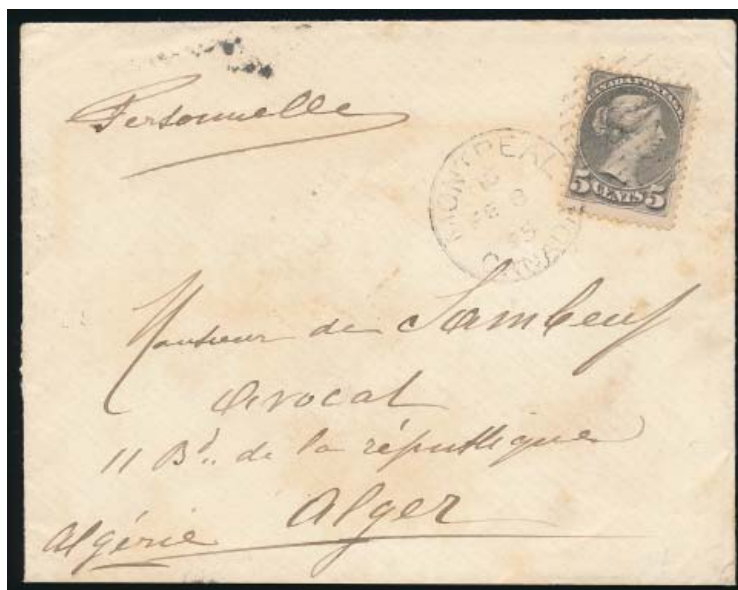 Personnelle
CANADA POSTAGE
5 CENTS 5
MONTREAL
CANADA
Monsieur de Sambeuf
Avocat
11 Bd. de la république
Alger
Algérie